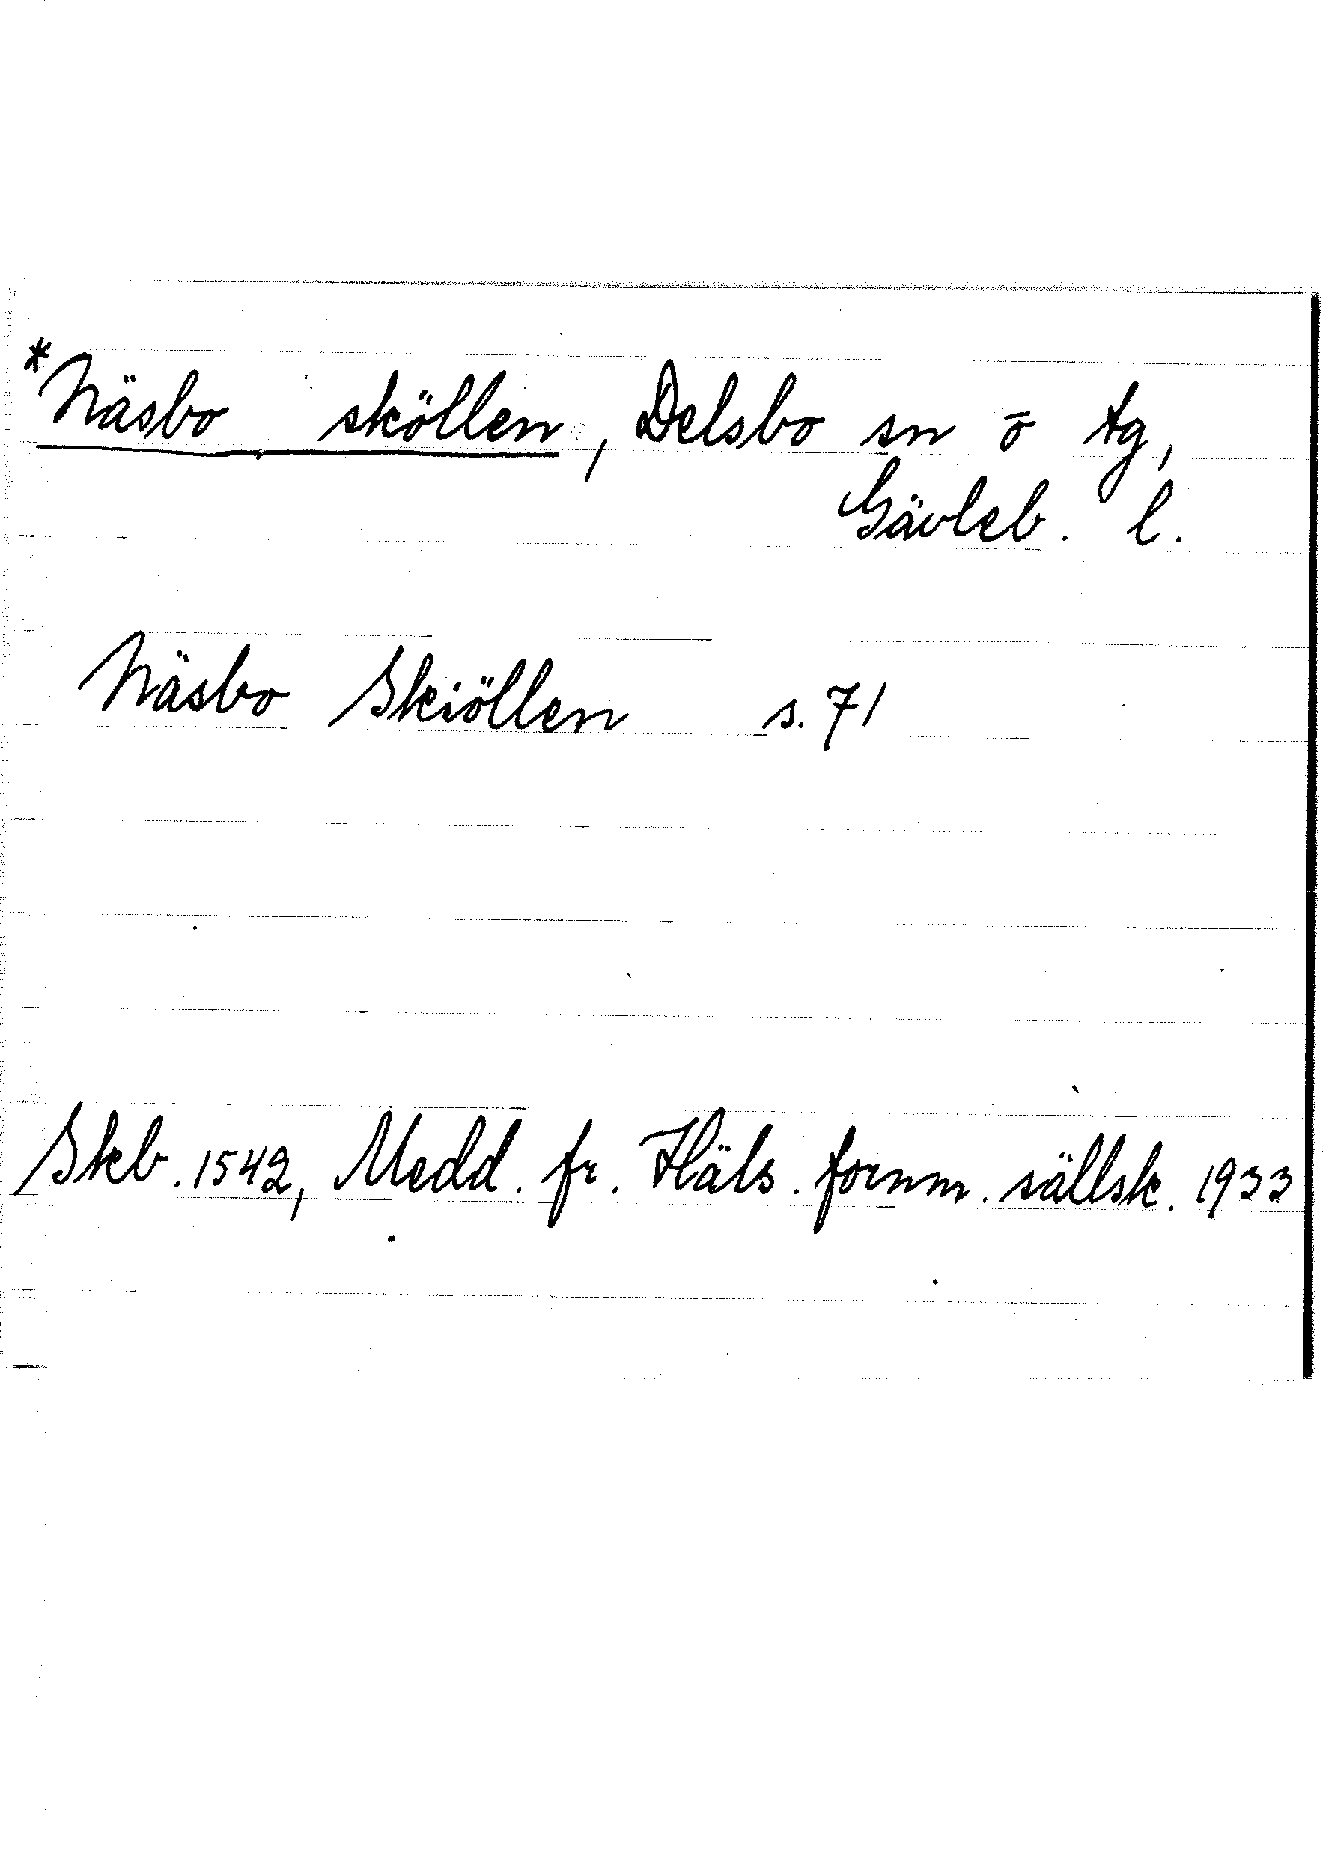 *Näsbo sköllen, Delsbo sn o tg,
Gävleb. l.
Näsbo Skiöllen s. 71
Skb. 1542, Medd. fr. Häls. fornm. sällsk. 1933